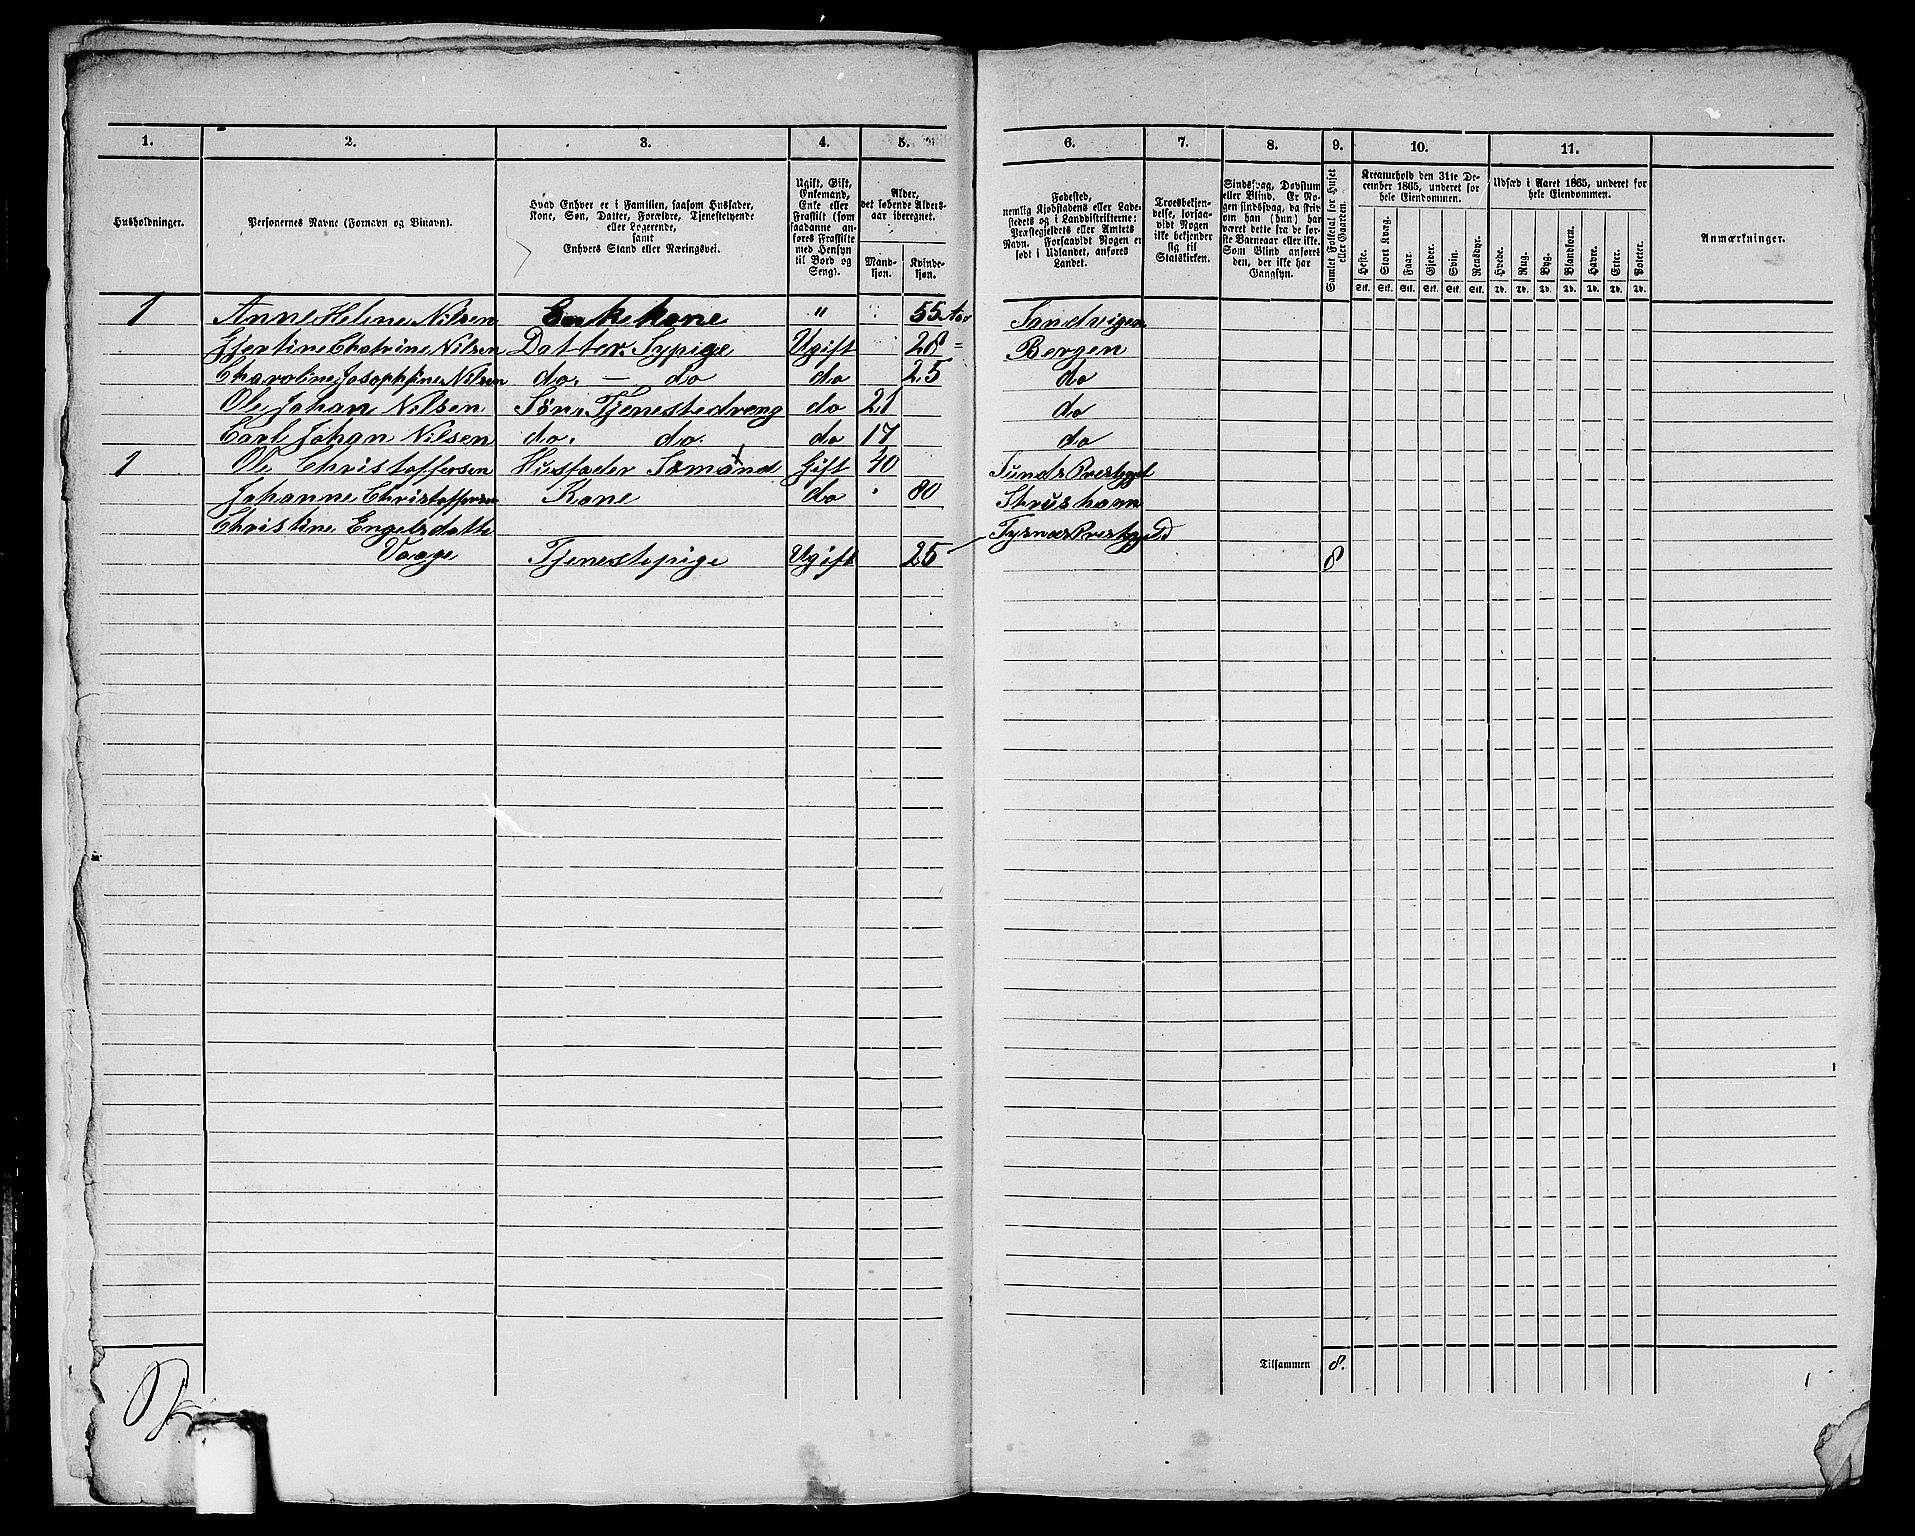 1. 2. 3. 4. 5. 6. 7. 8. 9. 10. 11.
Husholdninger.
Personernes Navne (Fornavn og Binavn).
Hvad Enhver er i Familien, saasom Husfader,
Kone, Søn, Datter, Forældre, Tjenestetyende
eller Logerende,
samt
Enhvers Stand eller Næringsvei.
Ugift, Gift,
Enkemand,
Enke eller
Fraskilt (som
saadanne an-
føres Fraskilte
med Hensyn
til Bord og
Seng).
Alder,
det løbende Alders-
aar iberegnet.
Mand-
kjøn.
Kvinde-
kjøn.
Fødested,
nemlig Kjøbstadens eller Lade-
stedets og i Landdistrikterne:
Præstegjeldets eller Amtets
Navn. Forsaavidt Nogen er
født i Udlandet, anføres
Landet.
Troesbekjen-
delse, forsaa-
vidt Nogen
ikke bekjender
sig til
Statskirken.
Sindssvag, Døvstum
eller Blind. Er No-
gen sindssvag, da skriv
om han (hun) har
været dette fra de før-
ste Barneaar eller ikke.
Som Blind anføres
den, der ikke har
Gangsyn.
Samlet Folketal for Huset
eller Gaarden.
Kreaturhold den 31te De-
cember 1865, underet for
hele Eiendommen.
Heste. Stort Kvæg. Faar. Gjeder. Svin. Rensdyr.
Stk. Stk. Stk. Stk. Stk. Stk.
Udsæd i Aaret 1865, underet for
hele Eiendommen.
Hvede. Rug. Byg. Blandkorn. Havre. Erter. Poteter.
Td. Td. Td. Td. Td. Td. Td.
Anmærkninger.
1 Anne Heline Nilsen Enkekone " 55 Aar Sandvigen
Gjertine Chatrine Nilsen Datter. Sypige Ugift 28 = Bergen
Charoline Josephine Nilsen do. — do do 25 do
Ole Johan Nilsen Søn. Tjenestedreng do 21 do
Carl Johan Nilsen do. do. do 17 do
1 Ole Christoffersen Husfader Sømand Gift 40 Sunds Prestegjel
Johanne Christoffersen Kone do 80 Strusham
Christine Engelsdatte Tysnæs Prestegjeld
Vaage Tjenestepige Ugift 25 8
Tilsammen 8.